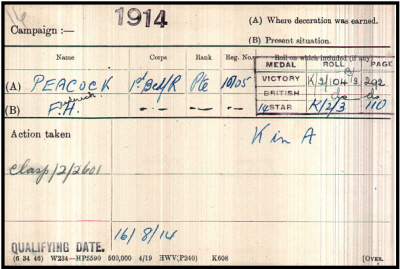 1914
Campaign :—
(A) Where decoration was earned.
(B) Present situation.
Name Corps Rank Reg. No. Roll on which included (if any)
MEDAL ROLL PAGE
(A) PEACOCK 1st Bedf/R Pte 10105 VICTORY K/2/104 B3 292
(B) F.H. Frederick -"- -"- BRITISH do do
14 STAR K/2/3 110
Action taken K in A
Clasp/2/2601
QUALIFYING DATE. 16/8/14
(6 34 46) W234—HP5590 500,000 4/19 HWV(P240) K608 [OVER.